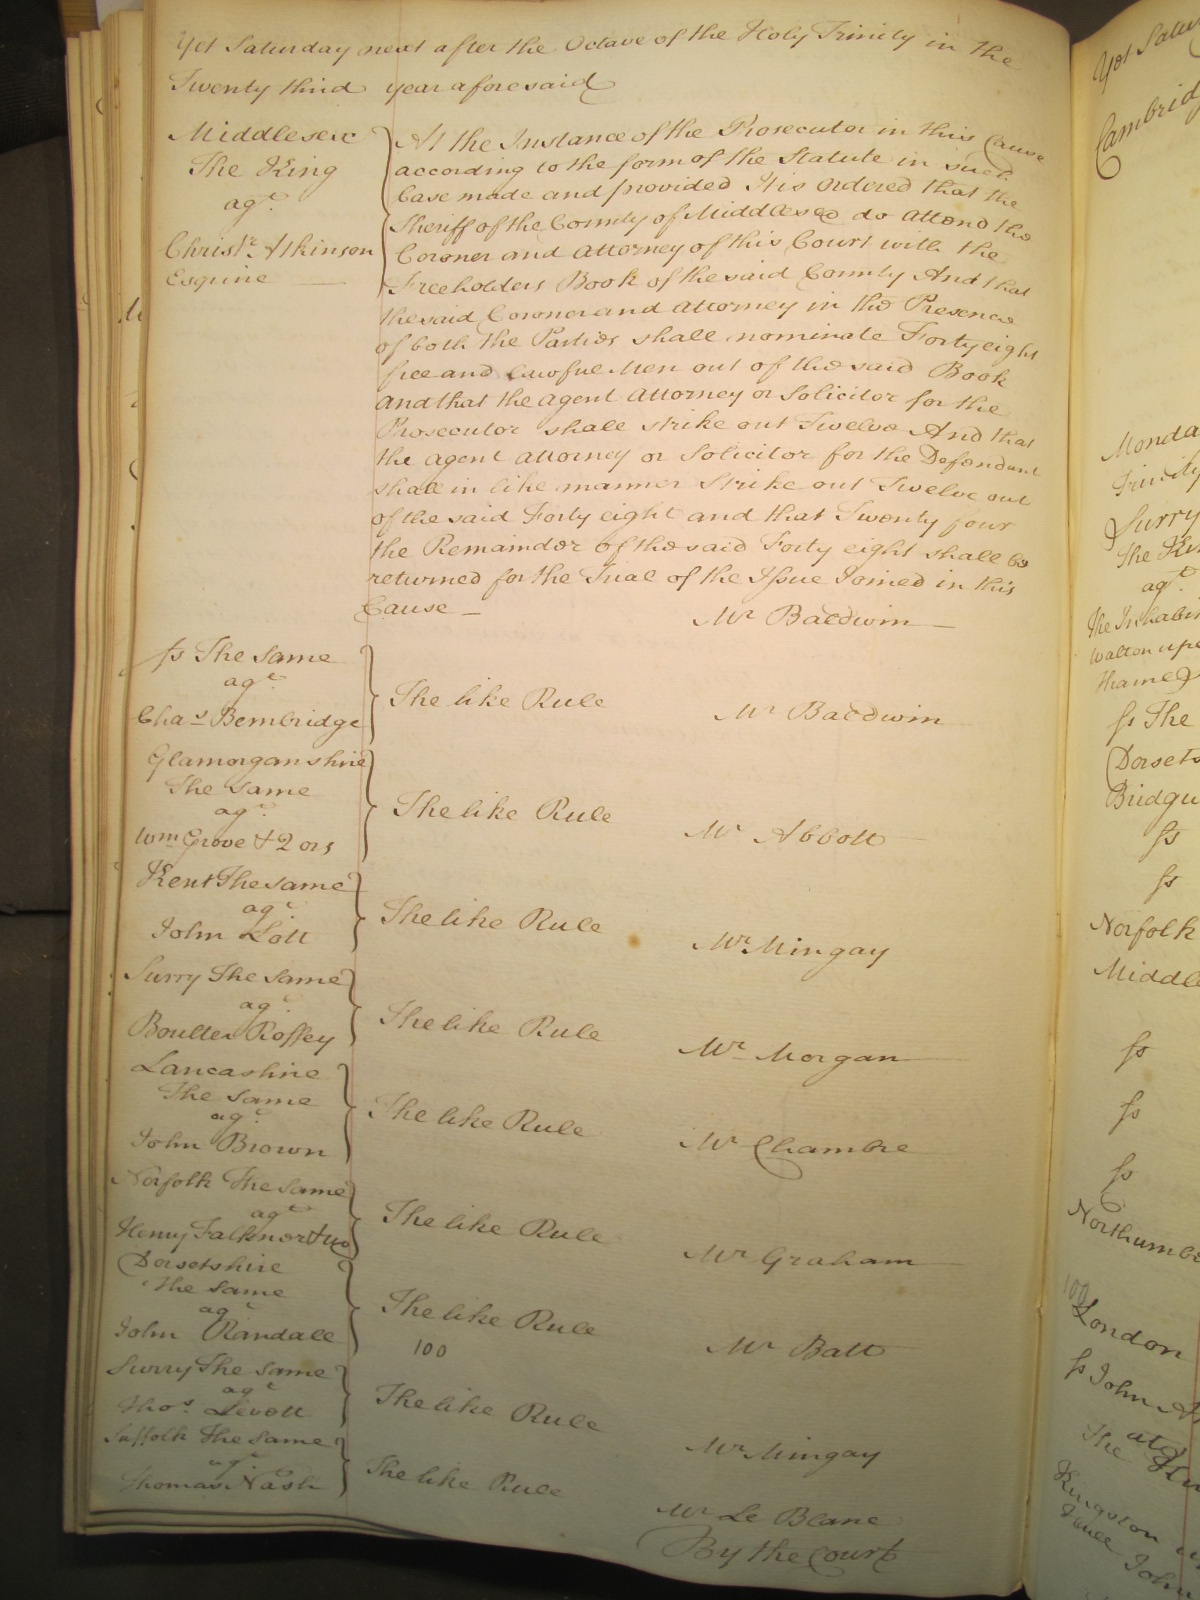 Yet Saturday next after the Octave of the Holy Trinity in the
Twenty third year aforesaid
Middlesex
The King
agt.
Christr. Atkinson
Esquire
At the Instance of the Prosecutor in this Cause
according to the form of the Statute in such
Case made and provided It is Ordered that the
Sheriff of the County of Middlesex do attend the
Coroner and Attorney of this Court with the
Freeholders Book of the said County And that
the said Coroner and Attorney in the Presence
of both the Parties shall nominate Forty eight
free and lawful Men out of the said Book
and that the Agent Attorney or Solicitor for the
Prosecutor shall strike out Twelve And that
the Agent Attorney or Solicitor for the Defendant
shall in like manner Strike out Twelve out
of the said Forty eight and that Twenty four
the Remainder of the said Forty eight shall be
returned for the Trial of the Issue Joined in this
Cause
Mr Baldwin
Ss The Same
agt.
Chas Bembridge
The like Rule
Mr Baldwin
Glamorganshire
The Same
agt.
Wm Grove & 2 ors
The like Rule
Mr Abbott
Kent The same
agt
John Lott
The like Rule
Mr Mingay
Surry The Same
agt.
Boulter Roffey
The like Rule
Mr Morgan
Lancashire
The Same
agt.
John Brown
The like Rule
Mr Chambre
Norfolk The Same
agt
Henry Falkner & ux
The like Rule
Mr Graham
Dorsetshire
The Same
agt
John Randall
The like Rule
100
Mr Batt
Surry The Same
agt
Thos. Levett
The like Rule
Mr Mingay
Suffolk The Same
agt.
Thomas Nash
The like Rule
Mr Le Blanc
By the Court
Yet Satur
Cambrid
Monda
Trinity
Surry
The Ki
agt.
The Inhabi
Walton upo
Thames
Ss The
Dorsets
Bridgu
Ss
Ss
Norfolk
Middle
Ss
Ss
Ss
Northumbe
100
London
Ss John A
The
Kingston
John